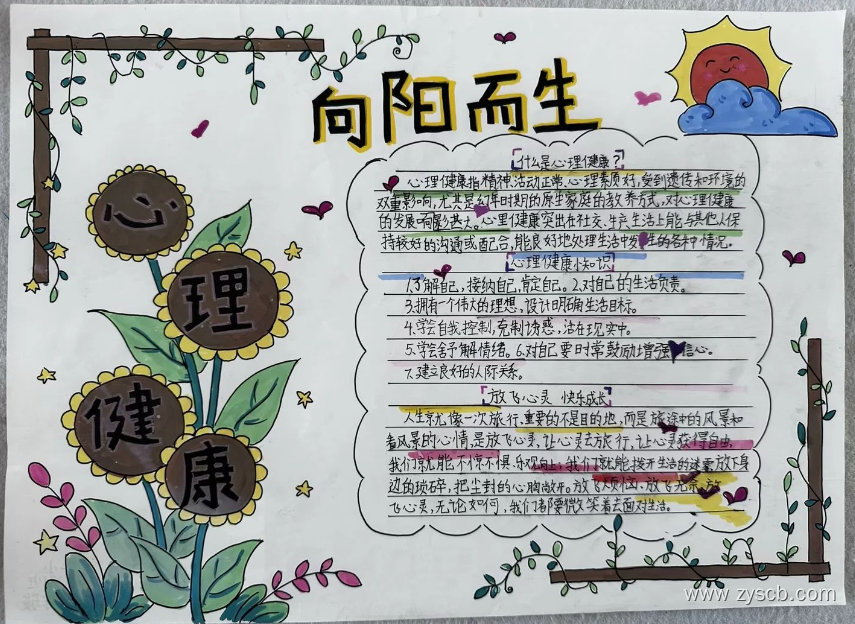 向阳而生
心
理
健
康
什么是心理健康?
心理健康指精神、活动正常、心理素质好,受到遗传和环境的
双重影响,尤其是幼年时期的原生家庭的教养方式,对心理健康
的发展响影甚大。心里健康突出在社交、生产、生活上能与其他人保
持较好的沟通或配合,能良好地处理生活中发生的各种情况。
心理健康小知识
1.了解自己,接纳自己,肯定自己。2.对自己的生活负责。
3.拥有一个伟大的理想,设计明确生活目标。
4.学会自我控制,克制诱惑,活在现实中。
5.学会舍予解情绪。6.对自己要时常鼓励增强信心。
7.建立良好的人际关系。
放飞心灵 快乐成长
人生就像一次旅行,重要的不是目的地,而是旅途中的风景和
看风景的心情,是放飞心灵,让心灵去旅行,让心灵获得自由,
我们就能不惊不惧、乐观向上,我们就能拨开生活的迷雾放下身
边的琐碎,把尘封的心胸敞开。放飞烦恼、放飞无奈、放
飞心灵,无论如何,我们都要微笑着去面对生活。
www.zyscb.com